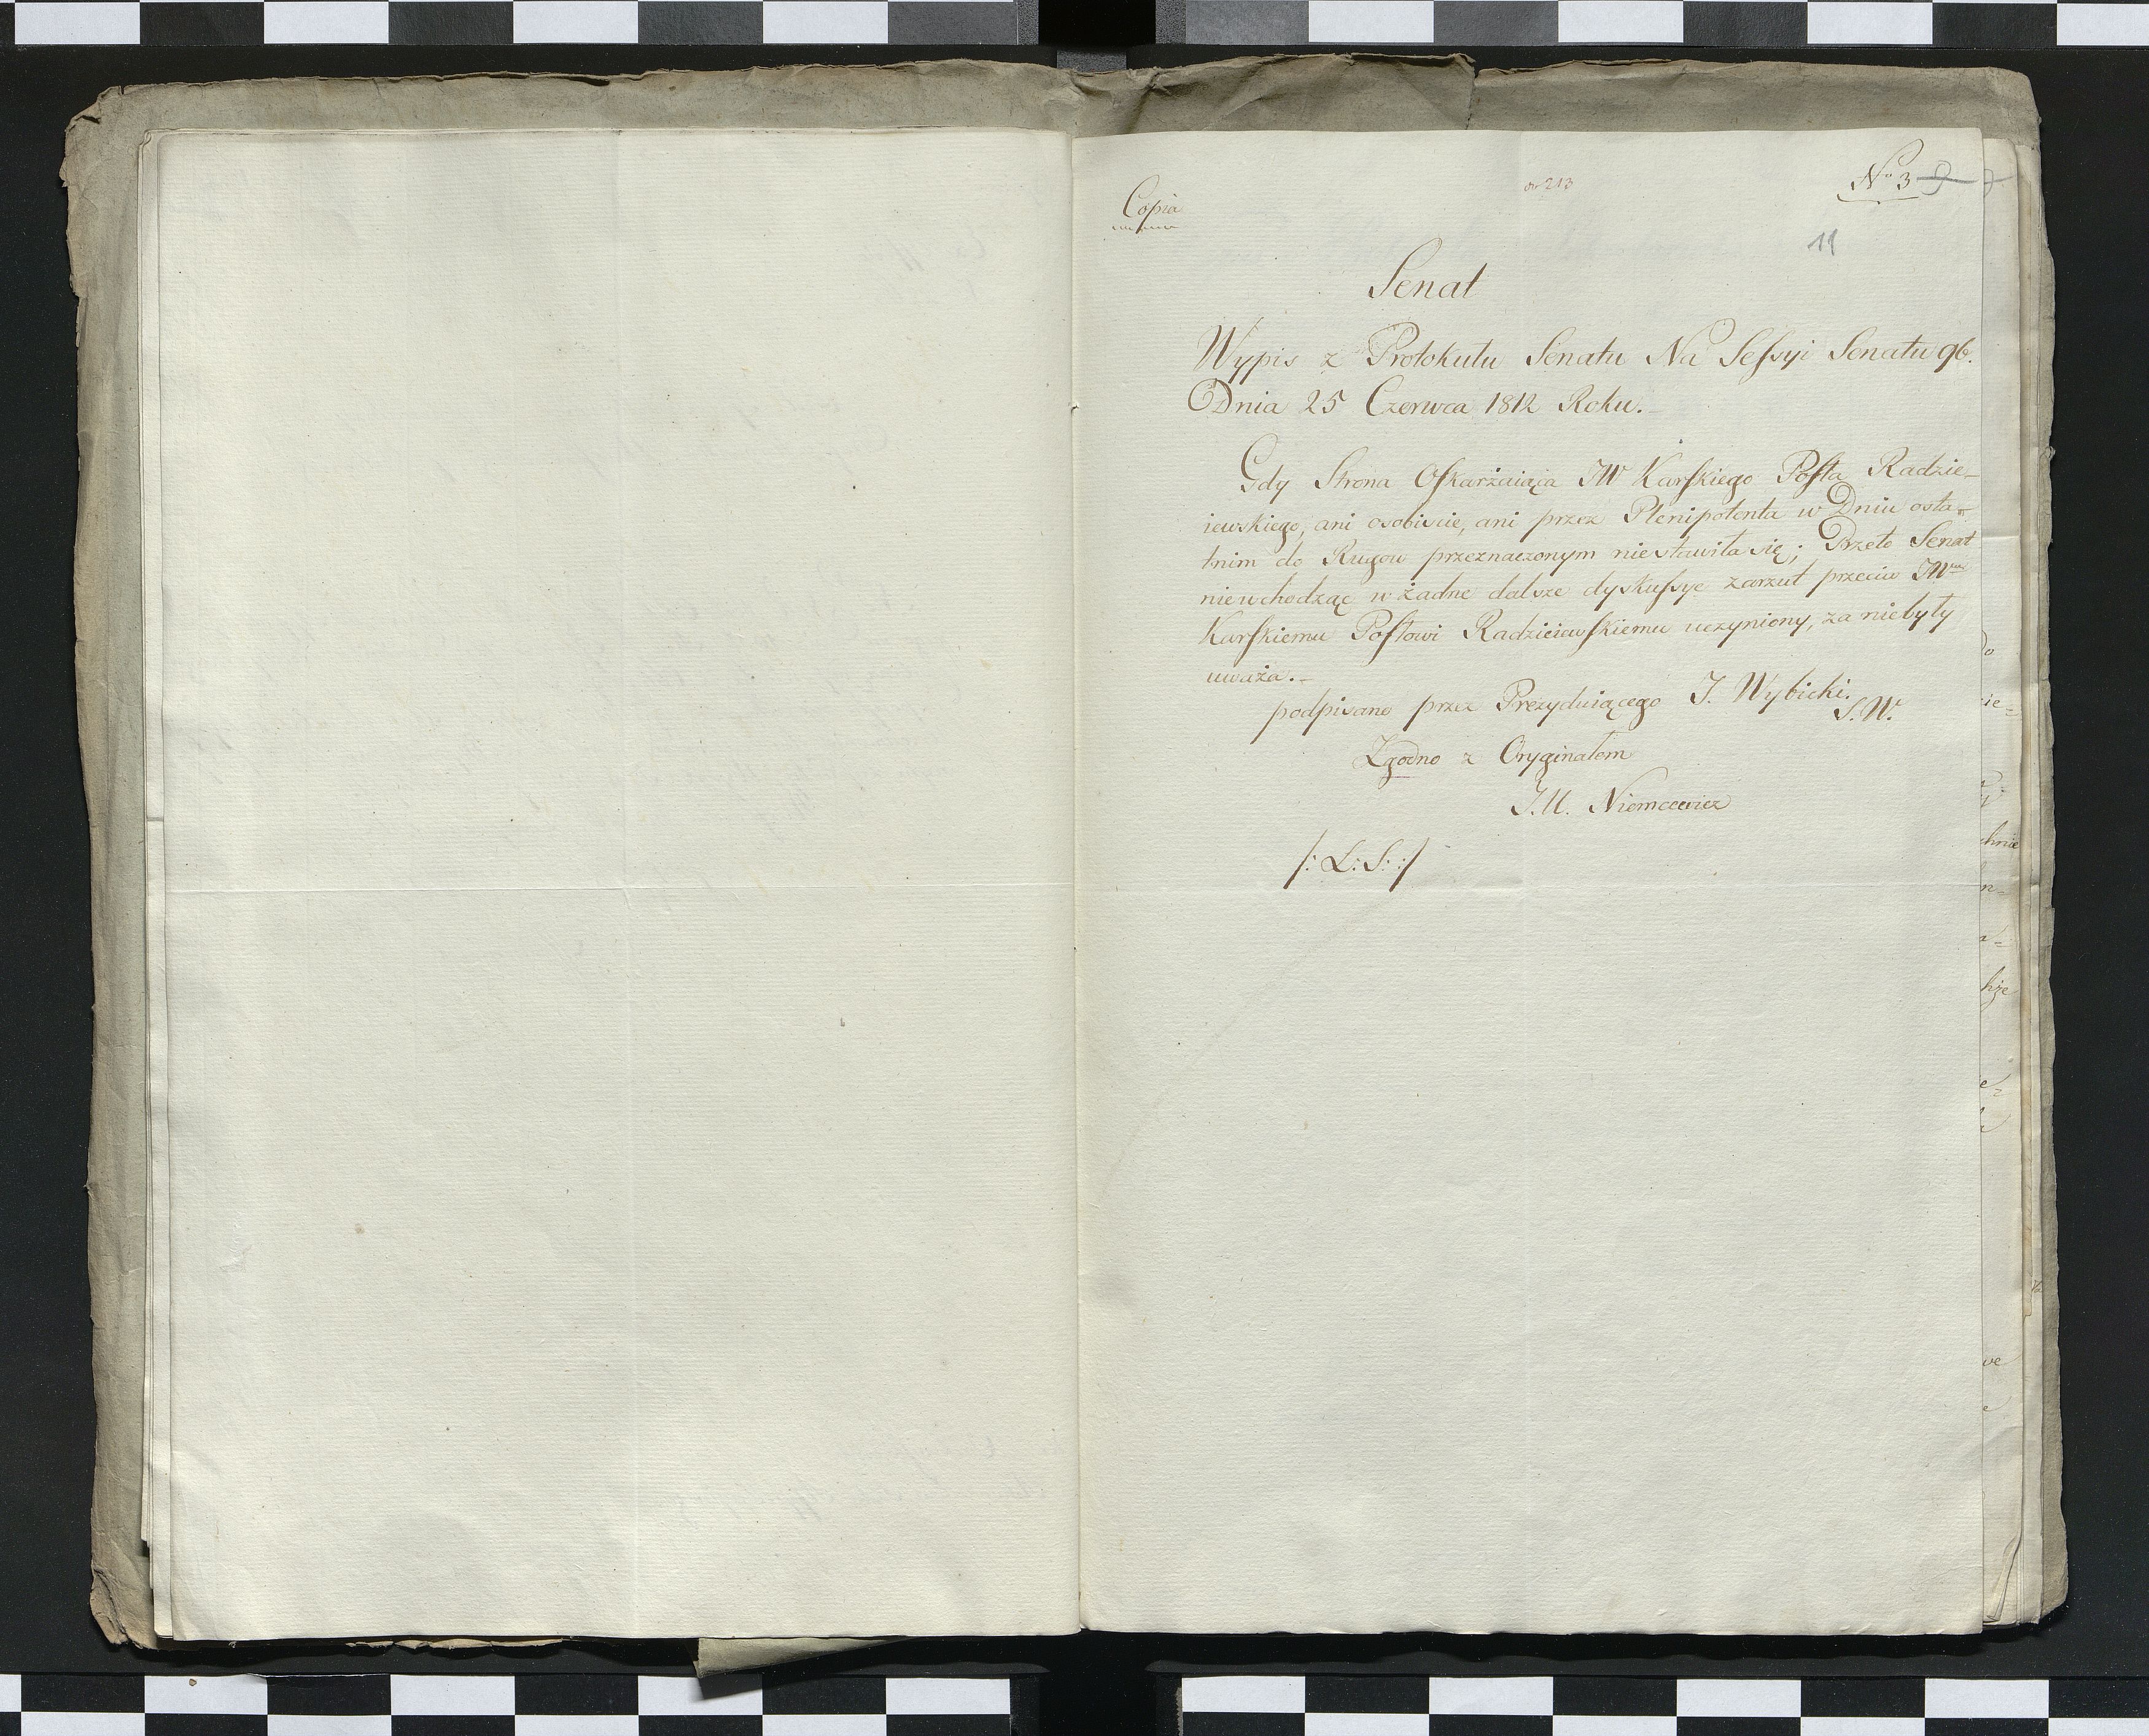 Copia
213
No 3
11
Senat
Wypis z Protokułu Senatu Na Sessyi Senatu 96.
Dnia 25 Czerwca 1812 Roku.
Gdy Strona Oskarżaiąca JW Karskiego Posła Radzie-
iewskiego, ani osobiscie, ani przez Plenipotenta w Dniu osta=
tnim do Rugow przeznaczonym niestawiła się; Przeto Senat
niewchodząc w żadne dalsze dyskussye zarzut przeciw JWmu
Karskiemu Posłowi Radzieiewskiemu uczyniony, za niebyły
uważa.-
podpisano przez Prezyduiącego J. Wybicki.
S.W.
Zgodno z Oryginałem
J.U. Niemcewicz
/: L: S: :/